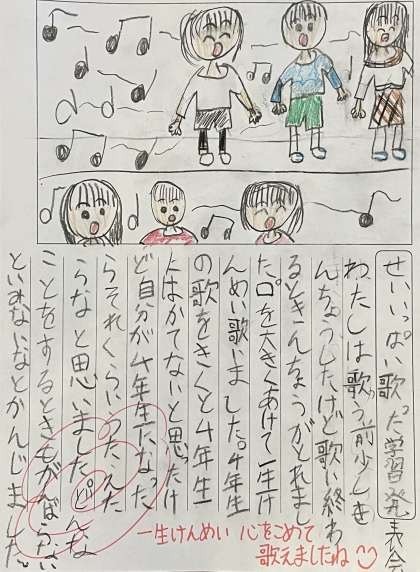 せいいっぱい歌った学習発表会
わたしは歌う前少しき
んちょうしたけど歌い終わ
るときんちょうがとれまし
た。口を大きくあけて一生け
んめい歌いました。4年生
の歌をきくと4年生
にはかてないと思ったけ
ど自分が4年生になった
らそれくらいうたえた
らなと思いました。どんな
ことをするときもがんばらない
といみないなとかんじました。
一生けんめい 心をこめて
歌えましたね